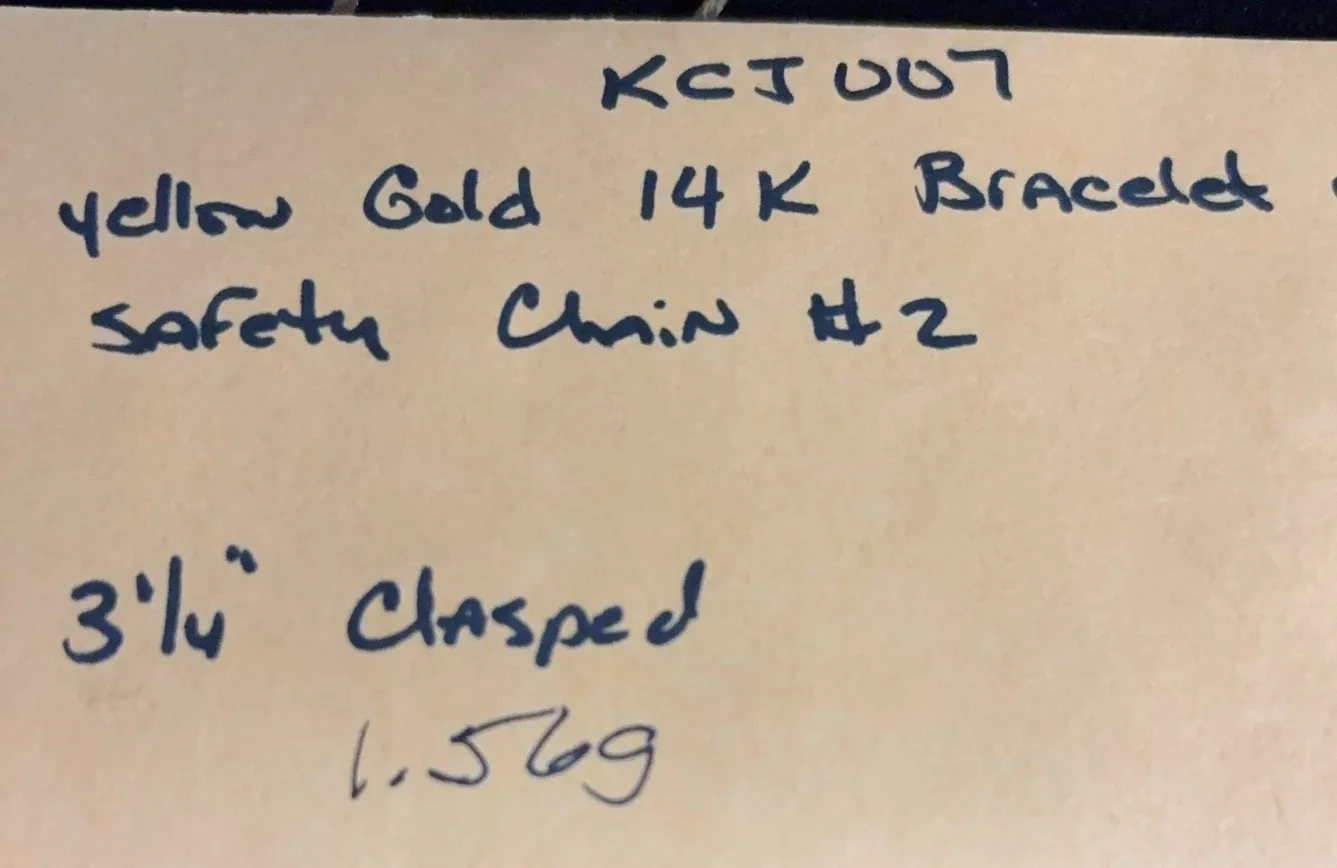 KCJ007
yellow Gold 14K Bracelet
safety Chain #2
3 1/4" Clasped
1.56g